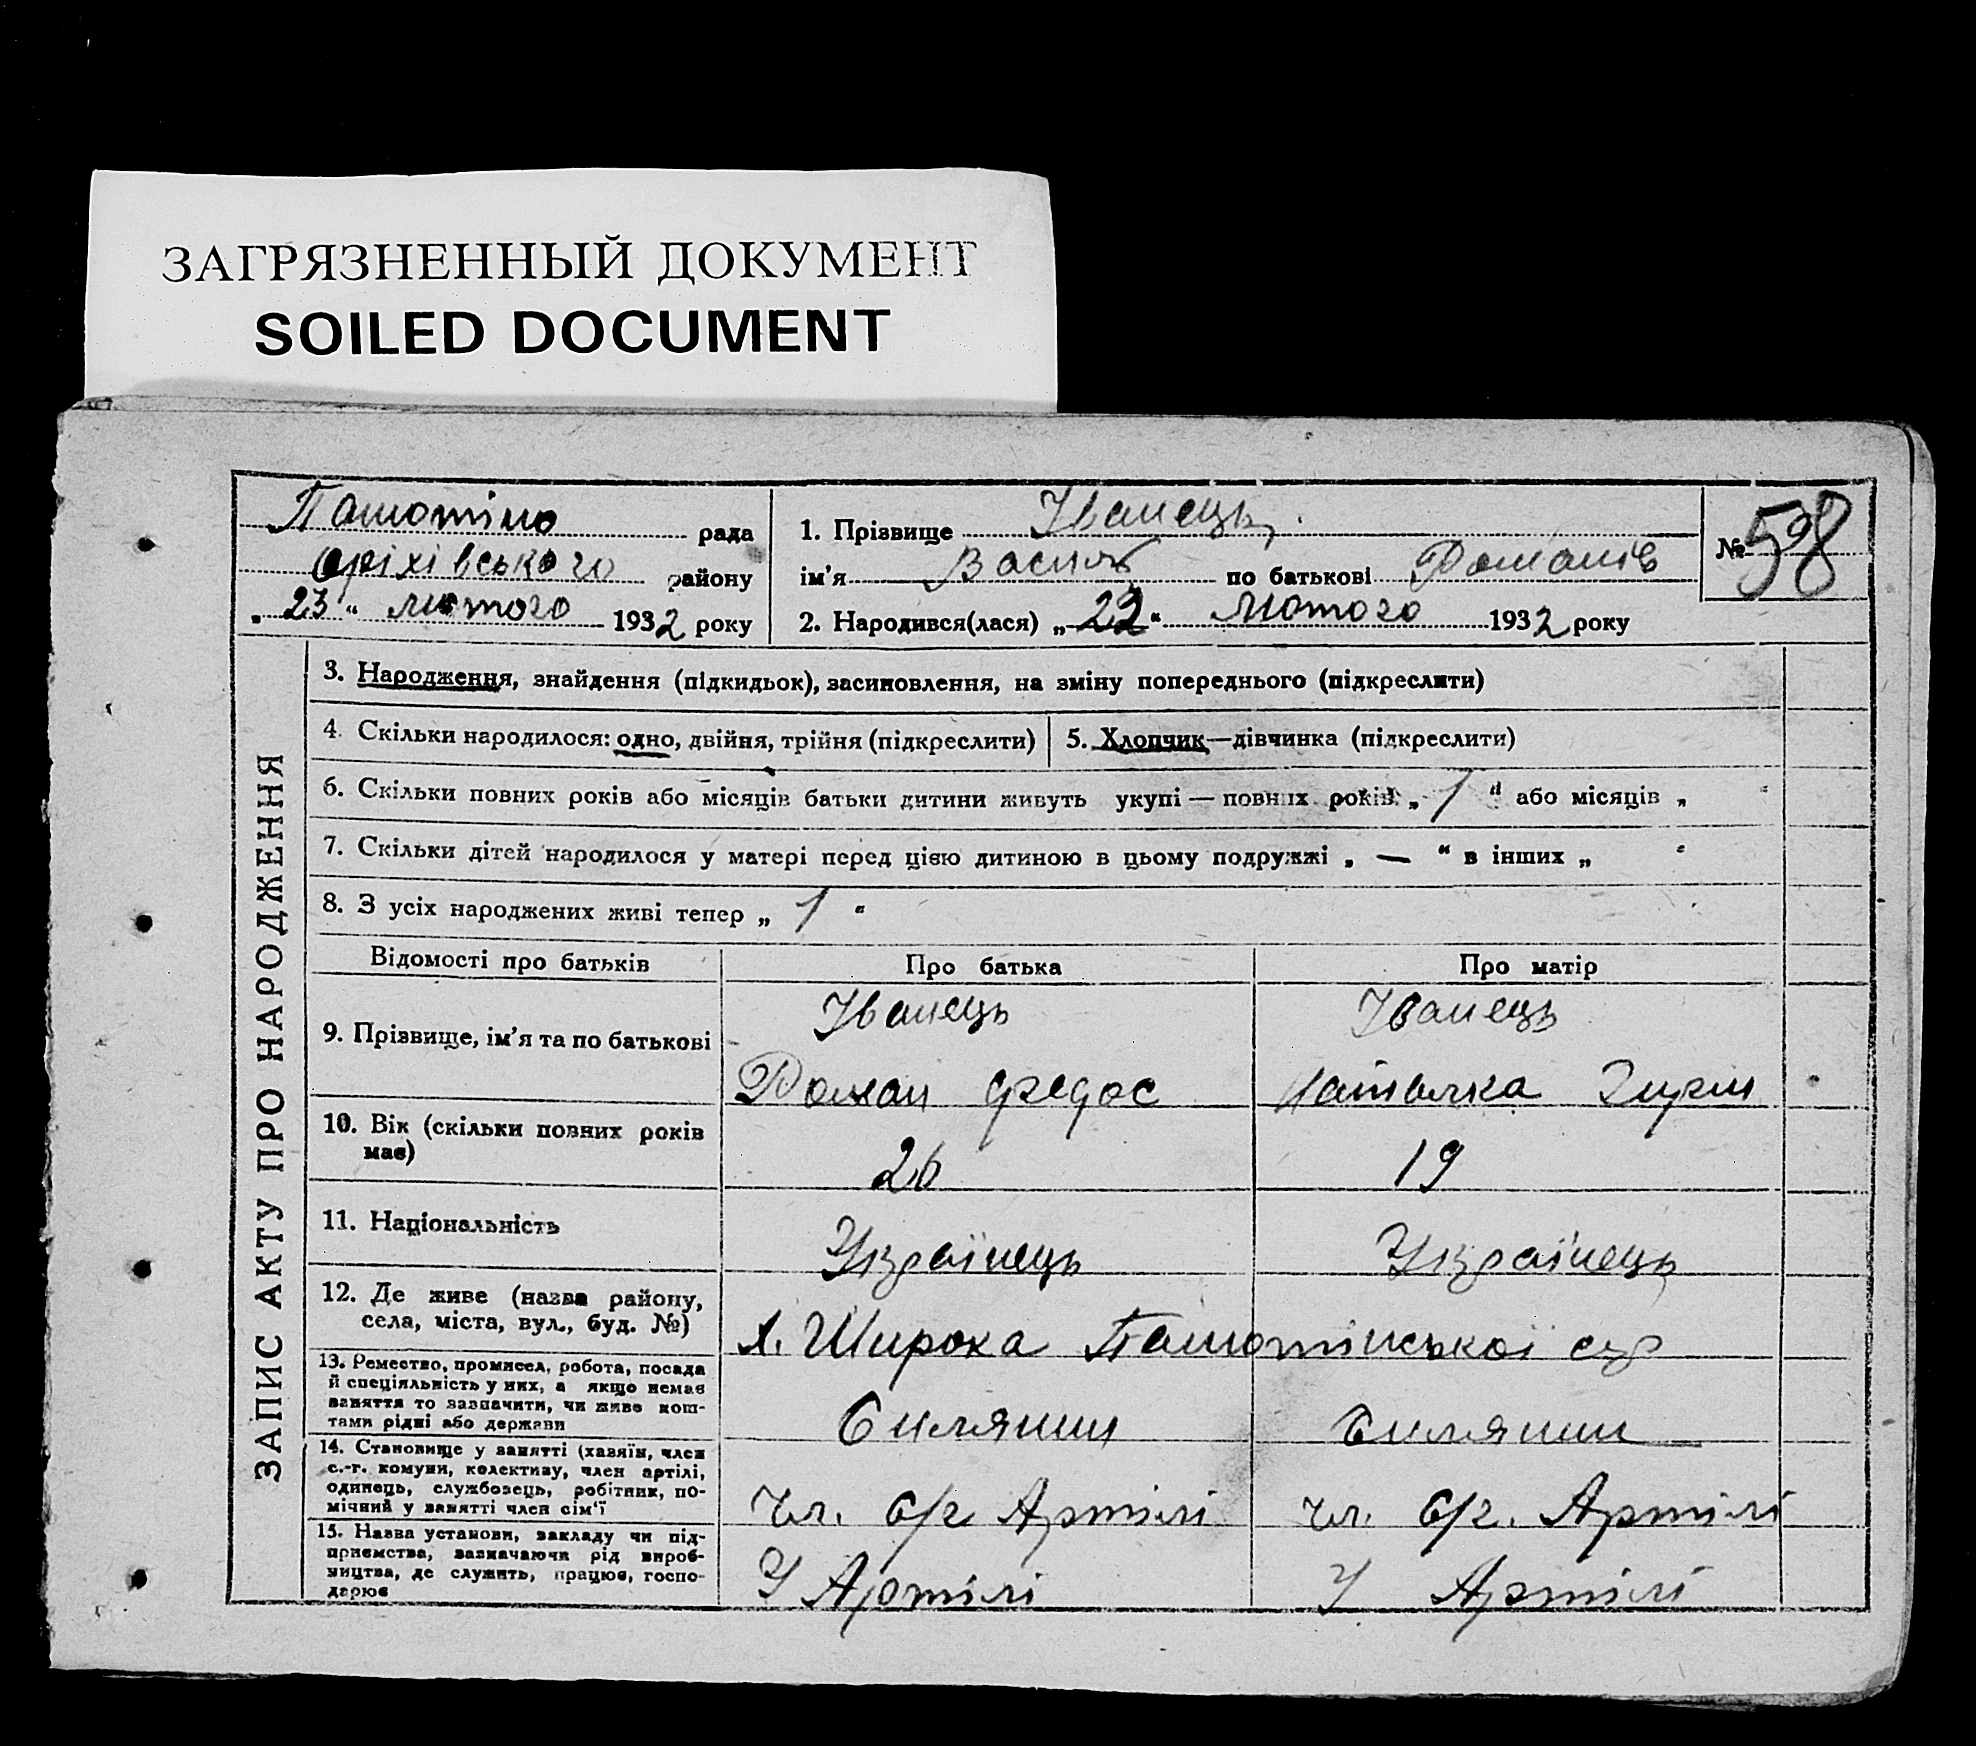 ЗАГРЯЗНЕННЫЙ ДОКУМЕНТ
SOILED DOCUMENT
рада
Оріхівського району
„ 23 “ лютого 1932 року
1. Прізвище Іванець
ім’я Василь по батькові Романів
2. Народився(лася) „ “ лютого 1932 року
№ 598
ЗАПИС АКТУ ПРО НАРОДЖЕННЯ
3. Народження, знайдення (підкидьок), засиновлення, на зміну попереднього (підкреслити)
4. Скільки народилося: одно, двійня, трійня (підкреслити)
5. Хлопчик—дівчинка (підкреслити)
6. Скільки повних років або місяців батьки дитини живуть укупі — повних років „ 1 “ або місяців „ “
7. Скільки дітей народилося у матері перед цією дитиною в цьому подружжі „ — “ в інших „ “
8. З усіх народжених живі тепер „ 1 “
Відомості про батьків Про батька Про матір
9. Прізвище, ім’я та по батькові Іванець Іванець
Роман Федос Наталка
10. Вік (скільки повних років
має) 26 19
11. Національність Українець Українець
12. Де живе (назва району,
села, міста, вул., буд. №) х. Широка
13. Ремество, промисел, робота, посада
й спеціяльність у них, а якщо немає
заняття то зазначити, чи живе кош-
тами рідні або держави
14. Становище у занятті (хазяїн, член
с.-г. комуни, колективу, член артілі,
одинець, службовець, робітник, по-
мічний у занятті член сім’ї
чл. с/г Артілі чл. с/г. Артілі
15. Назва установи, закладу чи під-
приємства, зазначаючи рід вироб-
ництва, де служить, працює, госпо-
дарює
У Артілі У Артілі